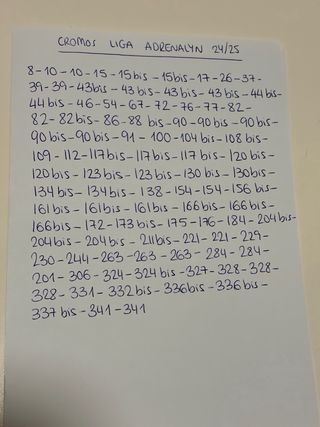 CROMOS LIGA ADRENALYN 24/25
8-10-10-15-15bis-15bis-17-26-37-
39-39-43bis-43bis-43bis-43bis-44bis-
44bis-46-54-67-72-76-77-82-
82-82bis-86-88bis-90-90bis-90bis-
90bis-90bis-91-100-104bis-108bis-
109-112-117bis-117bis-117bis-120bis-
120bis-123bis-123bis-130bis-130bis-
134bis-134bis-138-154-154-156bis-
161bis-161bis-161bis-166bis-166bis-
166bis-172-173bis-175-176-184-204bis-
204bis-204bis-211bis-221-221-229-
230-244-263-263-263-284-284-
201-306-324-324bis-327-328-328-
328-331-332bis-336bis-336bis-
337bis-341-341